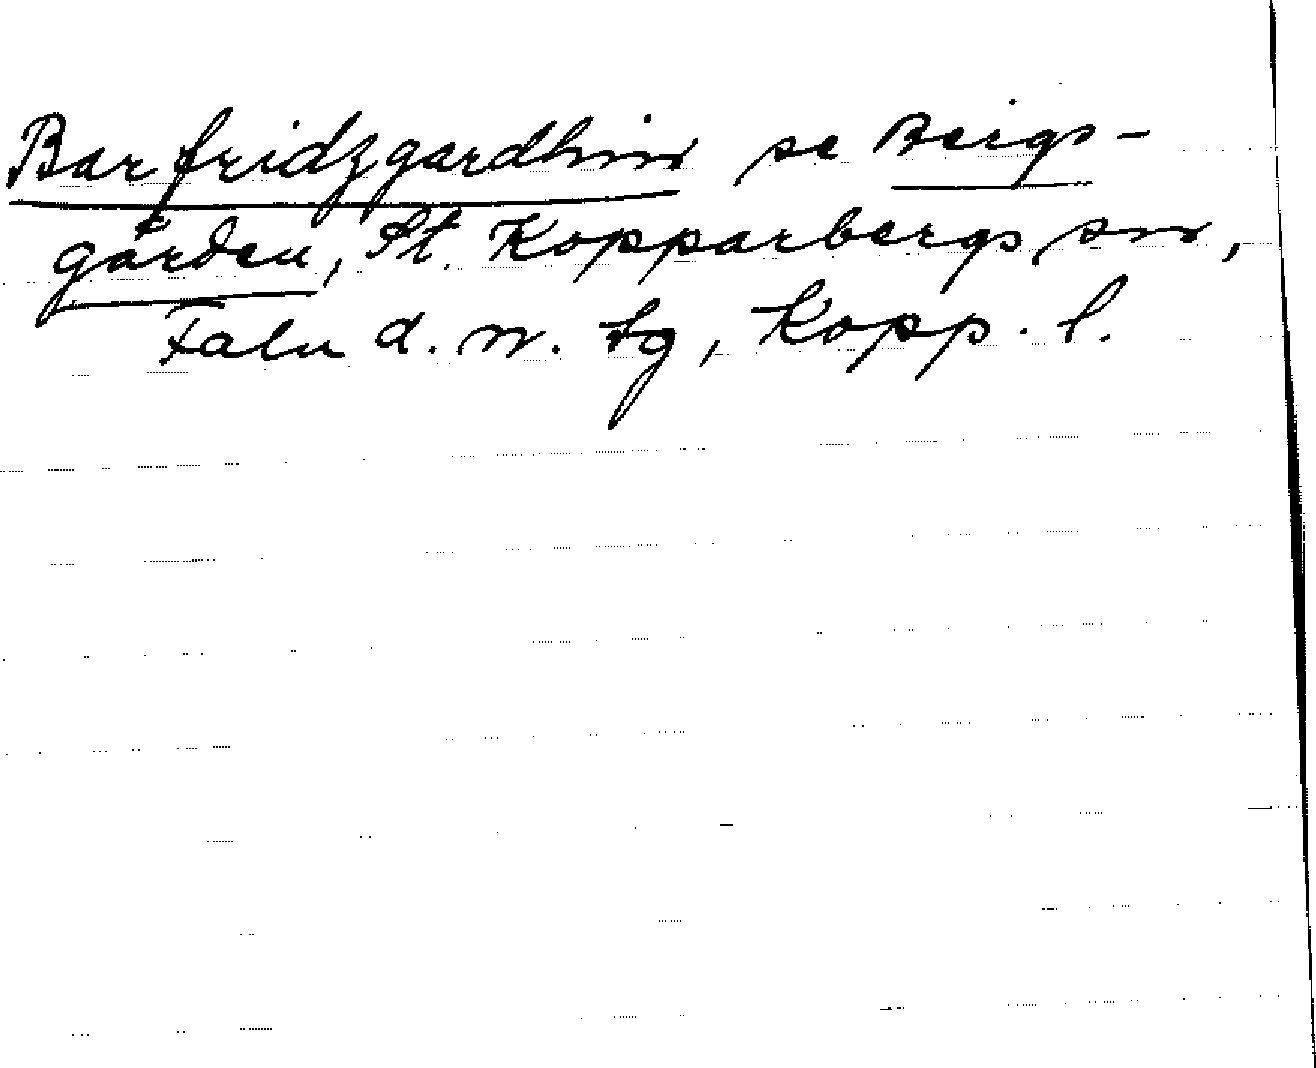 Barfridzgardhin se Bergs-
gården, St. Kopparbergs sn,
Falu d. n. tg, Kopp. l.